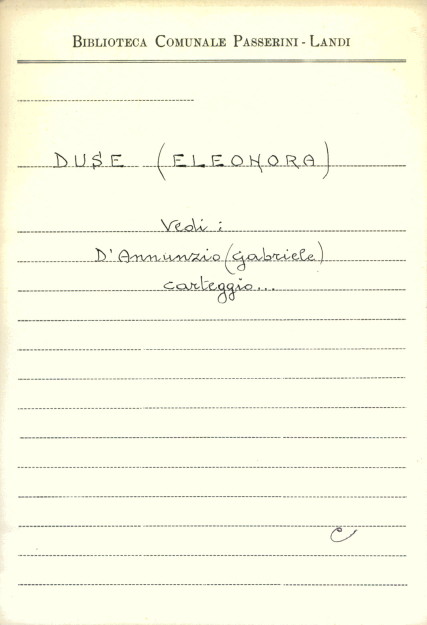 BIBLIOTECA COMUNALE PASSERINI - LANDI
DUSE (ELEONORA)
Vedi :
D'Annunzio (Gabriele)
carteggio...
C